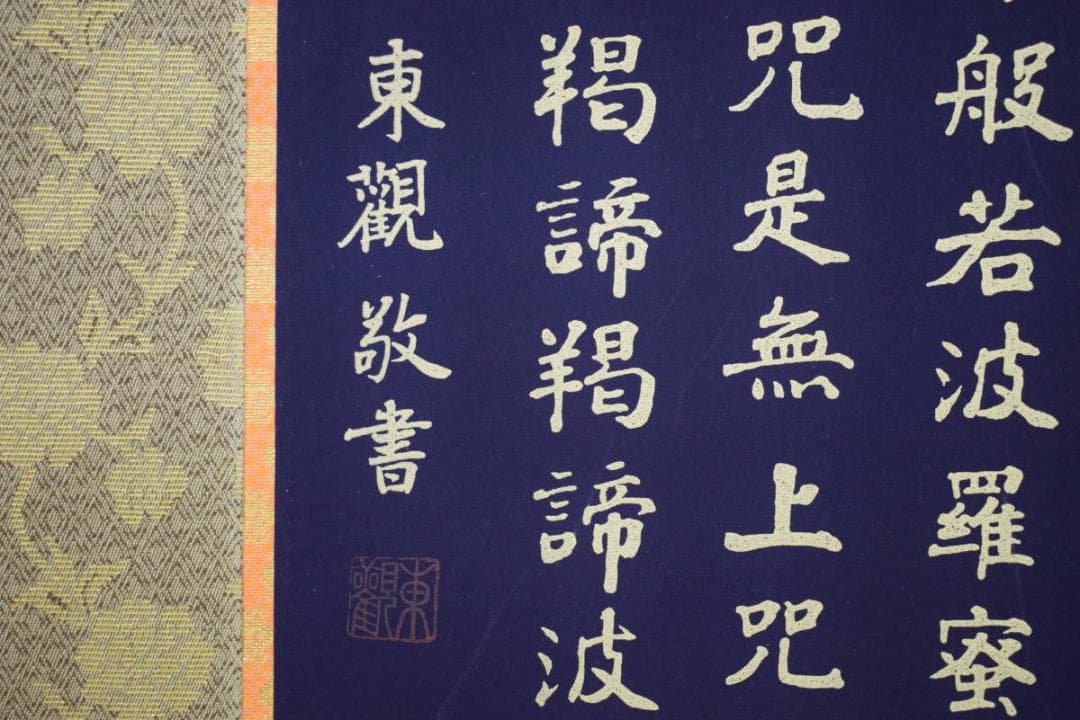 般若波羅蜜
咒是無上咒
羯諦羯諦波
東觀敬書
東觀